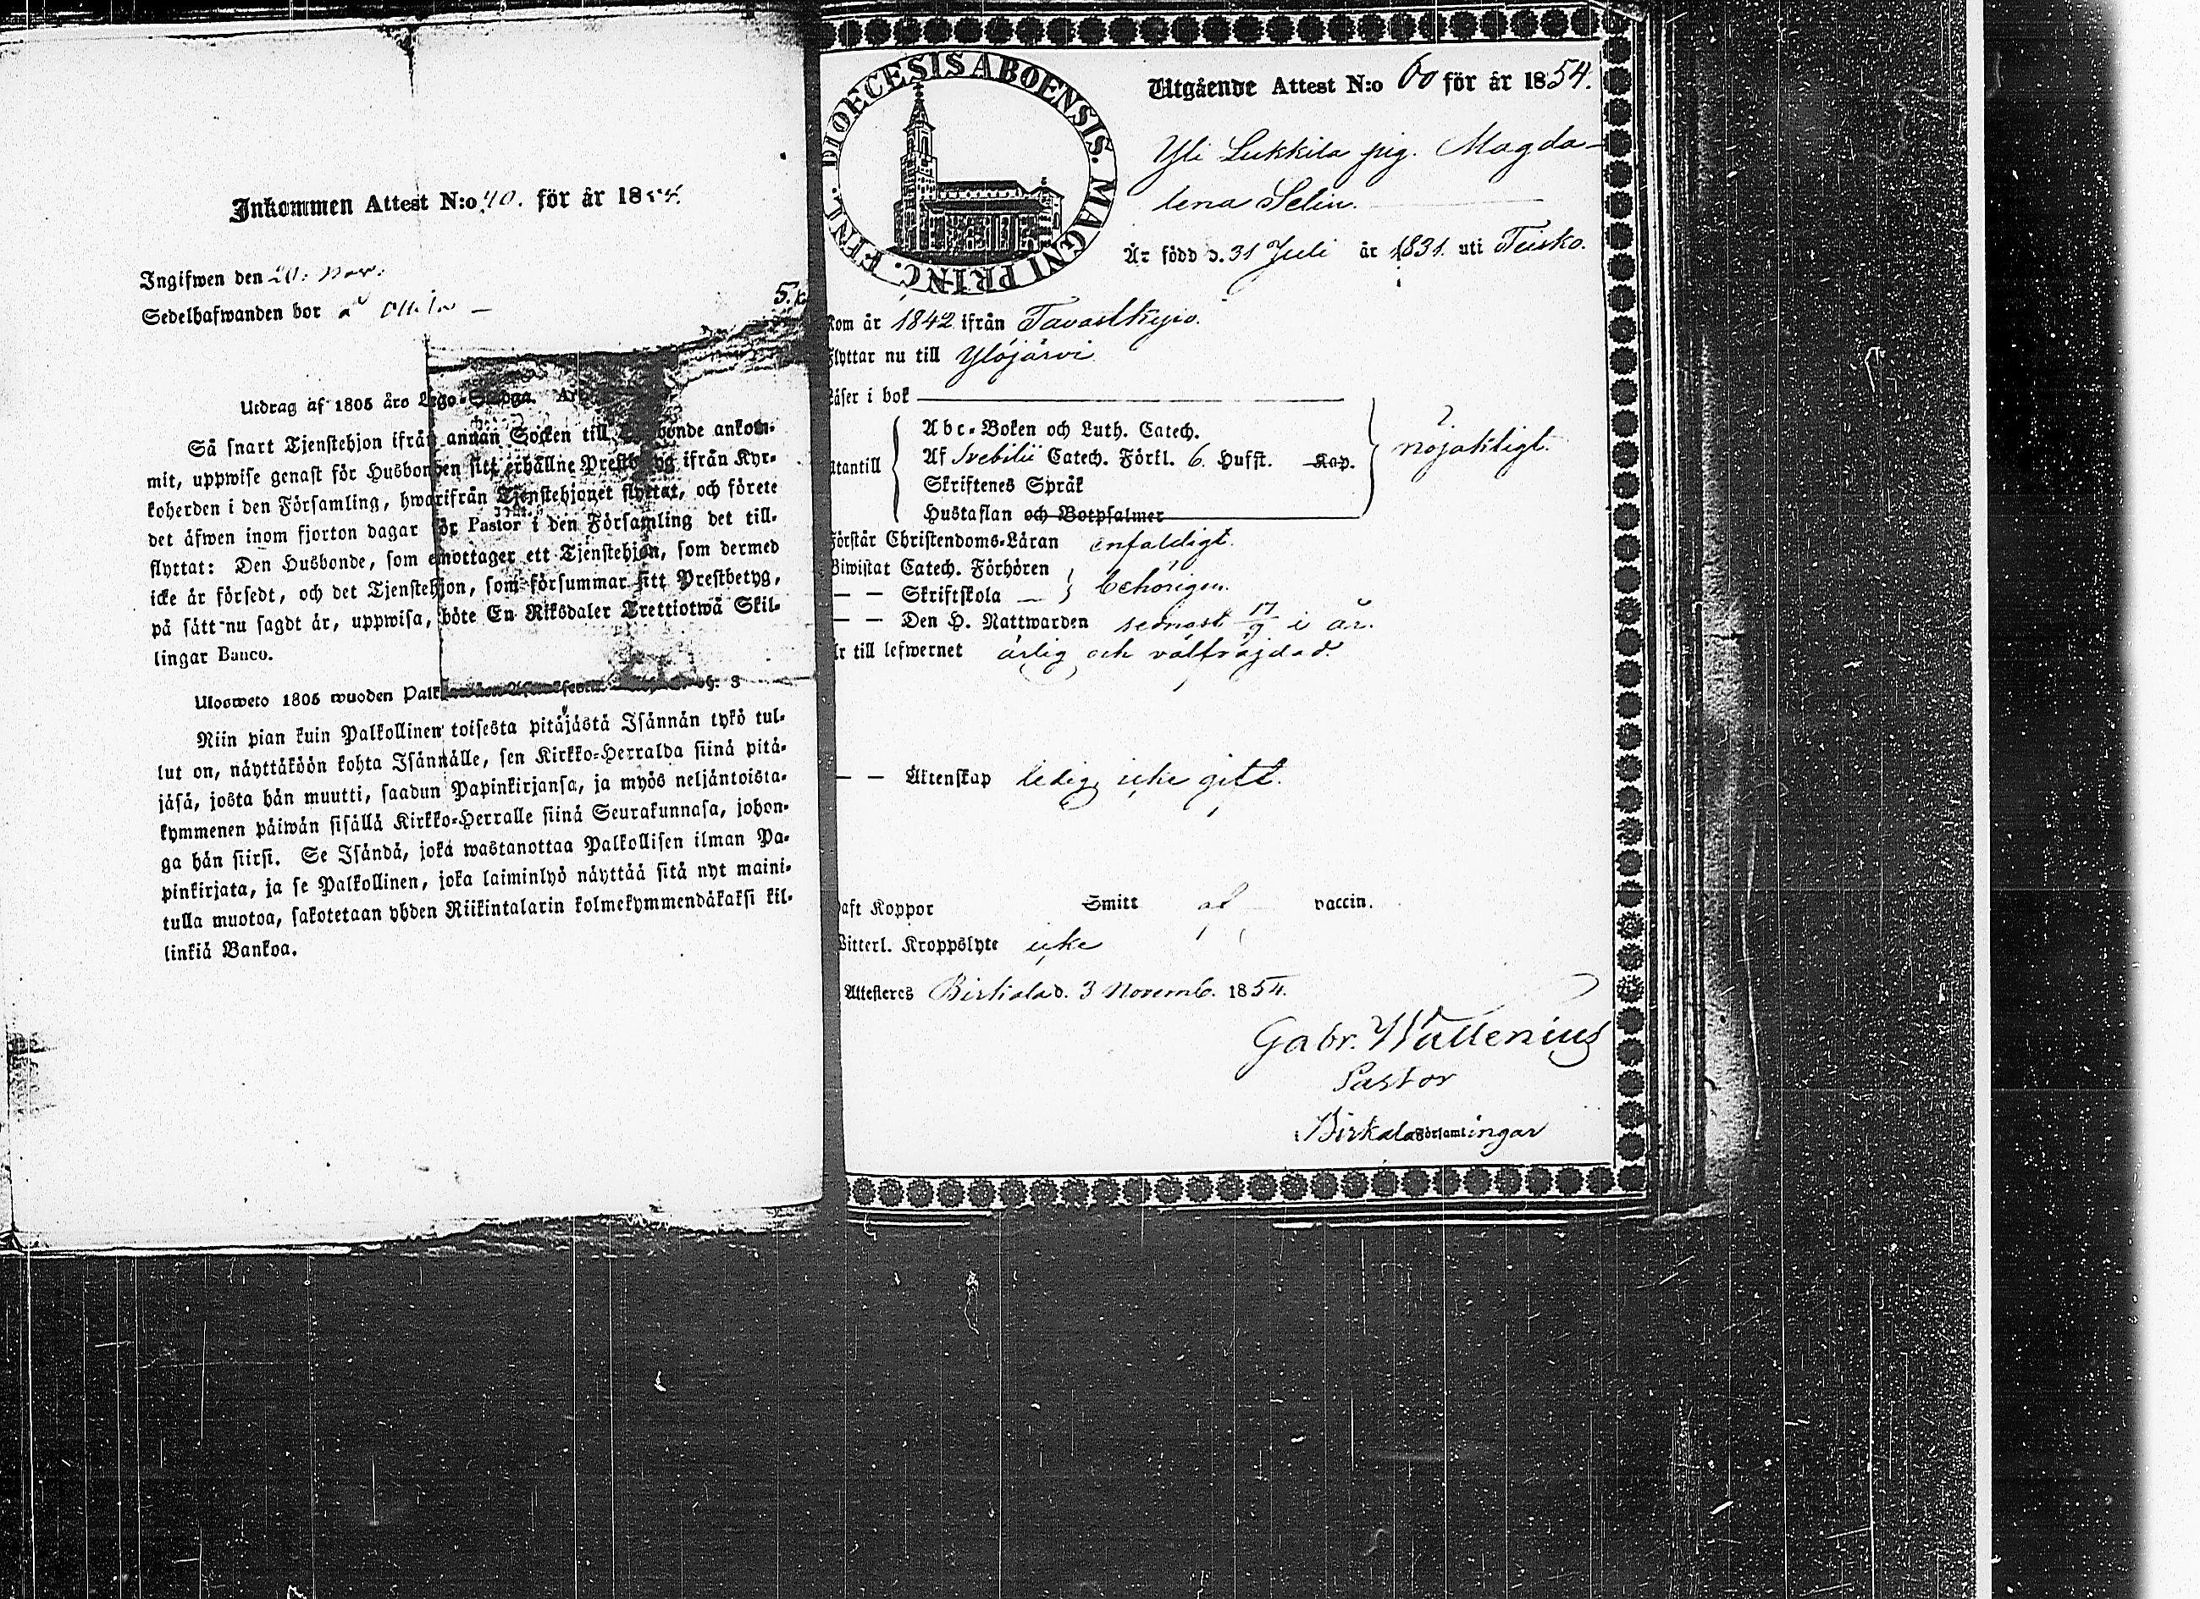 Inkommen Attest N:o 40. för år 1854.
Ingifwen den 20. Nov.
Sedelhafwanden bor å
5.k
Utdrag af 1805 års Lego-Stadga.
Så snart Tjenstehjon ifrån annan Socken till Husbonde ankom-
mit, uppwise genast för Husbonden sitt erhållne Prestbetyg ifrån Kyr-
koherden i den Församling, hwarifrån Tjenstehjonet flyttat, och förete
det äfwen inom fjorton dagar för Pastor i den Församling det till-
flyttat: Den Husbonde, som emottager ett Tjenstehjon, som dermed
icke är försedt, och det Tjenstehjon, som försummar sitt Prestbetyg,
på sätt nu sagdt är, uppwisa, böte En Riksdaler Trettiotwå Skil-
lingar Banco.
Ulosweto 1805 wuoden 3
Niin pian kuin Palkollinen toisesta pitäjästä Isännän tykö tul-
lut on, näyttäköön kohta Isännälle, sen Kirkko-Herralda siinä pitä-
jäsä, josta hän muutti, saadun Papinkirjansa, ja myös neljäntoista-
kymmenen päiwän sisällä Kirkko-Herralle siinä Seurakunnasa, johon-
ga hän siirsi. Se Isändä, joka wastanottaa Palkollisen ilman Pa-
pinkirjata, ja se Palkollinen, joka laiminlyö näyttää sitä nyt maini-
tulla muotoa, sakotetaan yhden Riikintalarin kolmekymmendäkaksi kil-
linkiä Bankoa.
DIOECESIS ABOENSIS. MAGNI PRINC. FINL.
Utgående Attest N:o 60 för år 1854.
Yli Lukkila pig. Magda-
lena Selin.
Är född d. 31 Juli år 1831. uti Teisko.
Kom år 1842 ifrån Tavastkyro.
Flyttar nu till Ylöjärvi
Läser i bok
Abc-Boken och Luth. Catech.
Utantill Af Svebilii Catech. Förkl. 6. Hufst. Kap. nöjaktligt.
Skriftenes Språk
Hustaflan och Botpsalmer
Förstår Christendoms-Läran enfaldigt.
Biwistat Catech. Förhören
— — Skriftskola — behörigen.
— — Den H. Nattwarden sednast 17/9 i år.
Är till lefwernet ärlig och välfräjdad.
— — Äktenskap ledig, icke gift.
Haft Koppor Smitt af vaccin.
Witterl. Kroppslyte icke
Attesteres Birkala d. 3 Novemb. 1854.
Gabr. Wallenius
Pastor
i Birkala Församlingar